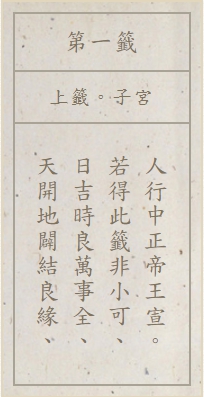 第一籤
上籤。子宮
天開地闢結良緣、
日吉時良萬事全、
若得此籤非小可、
人行中正帝王宣。